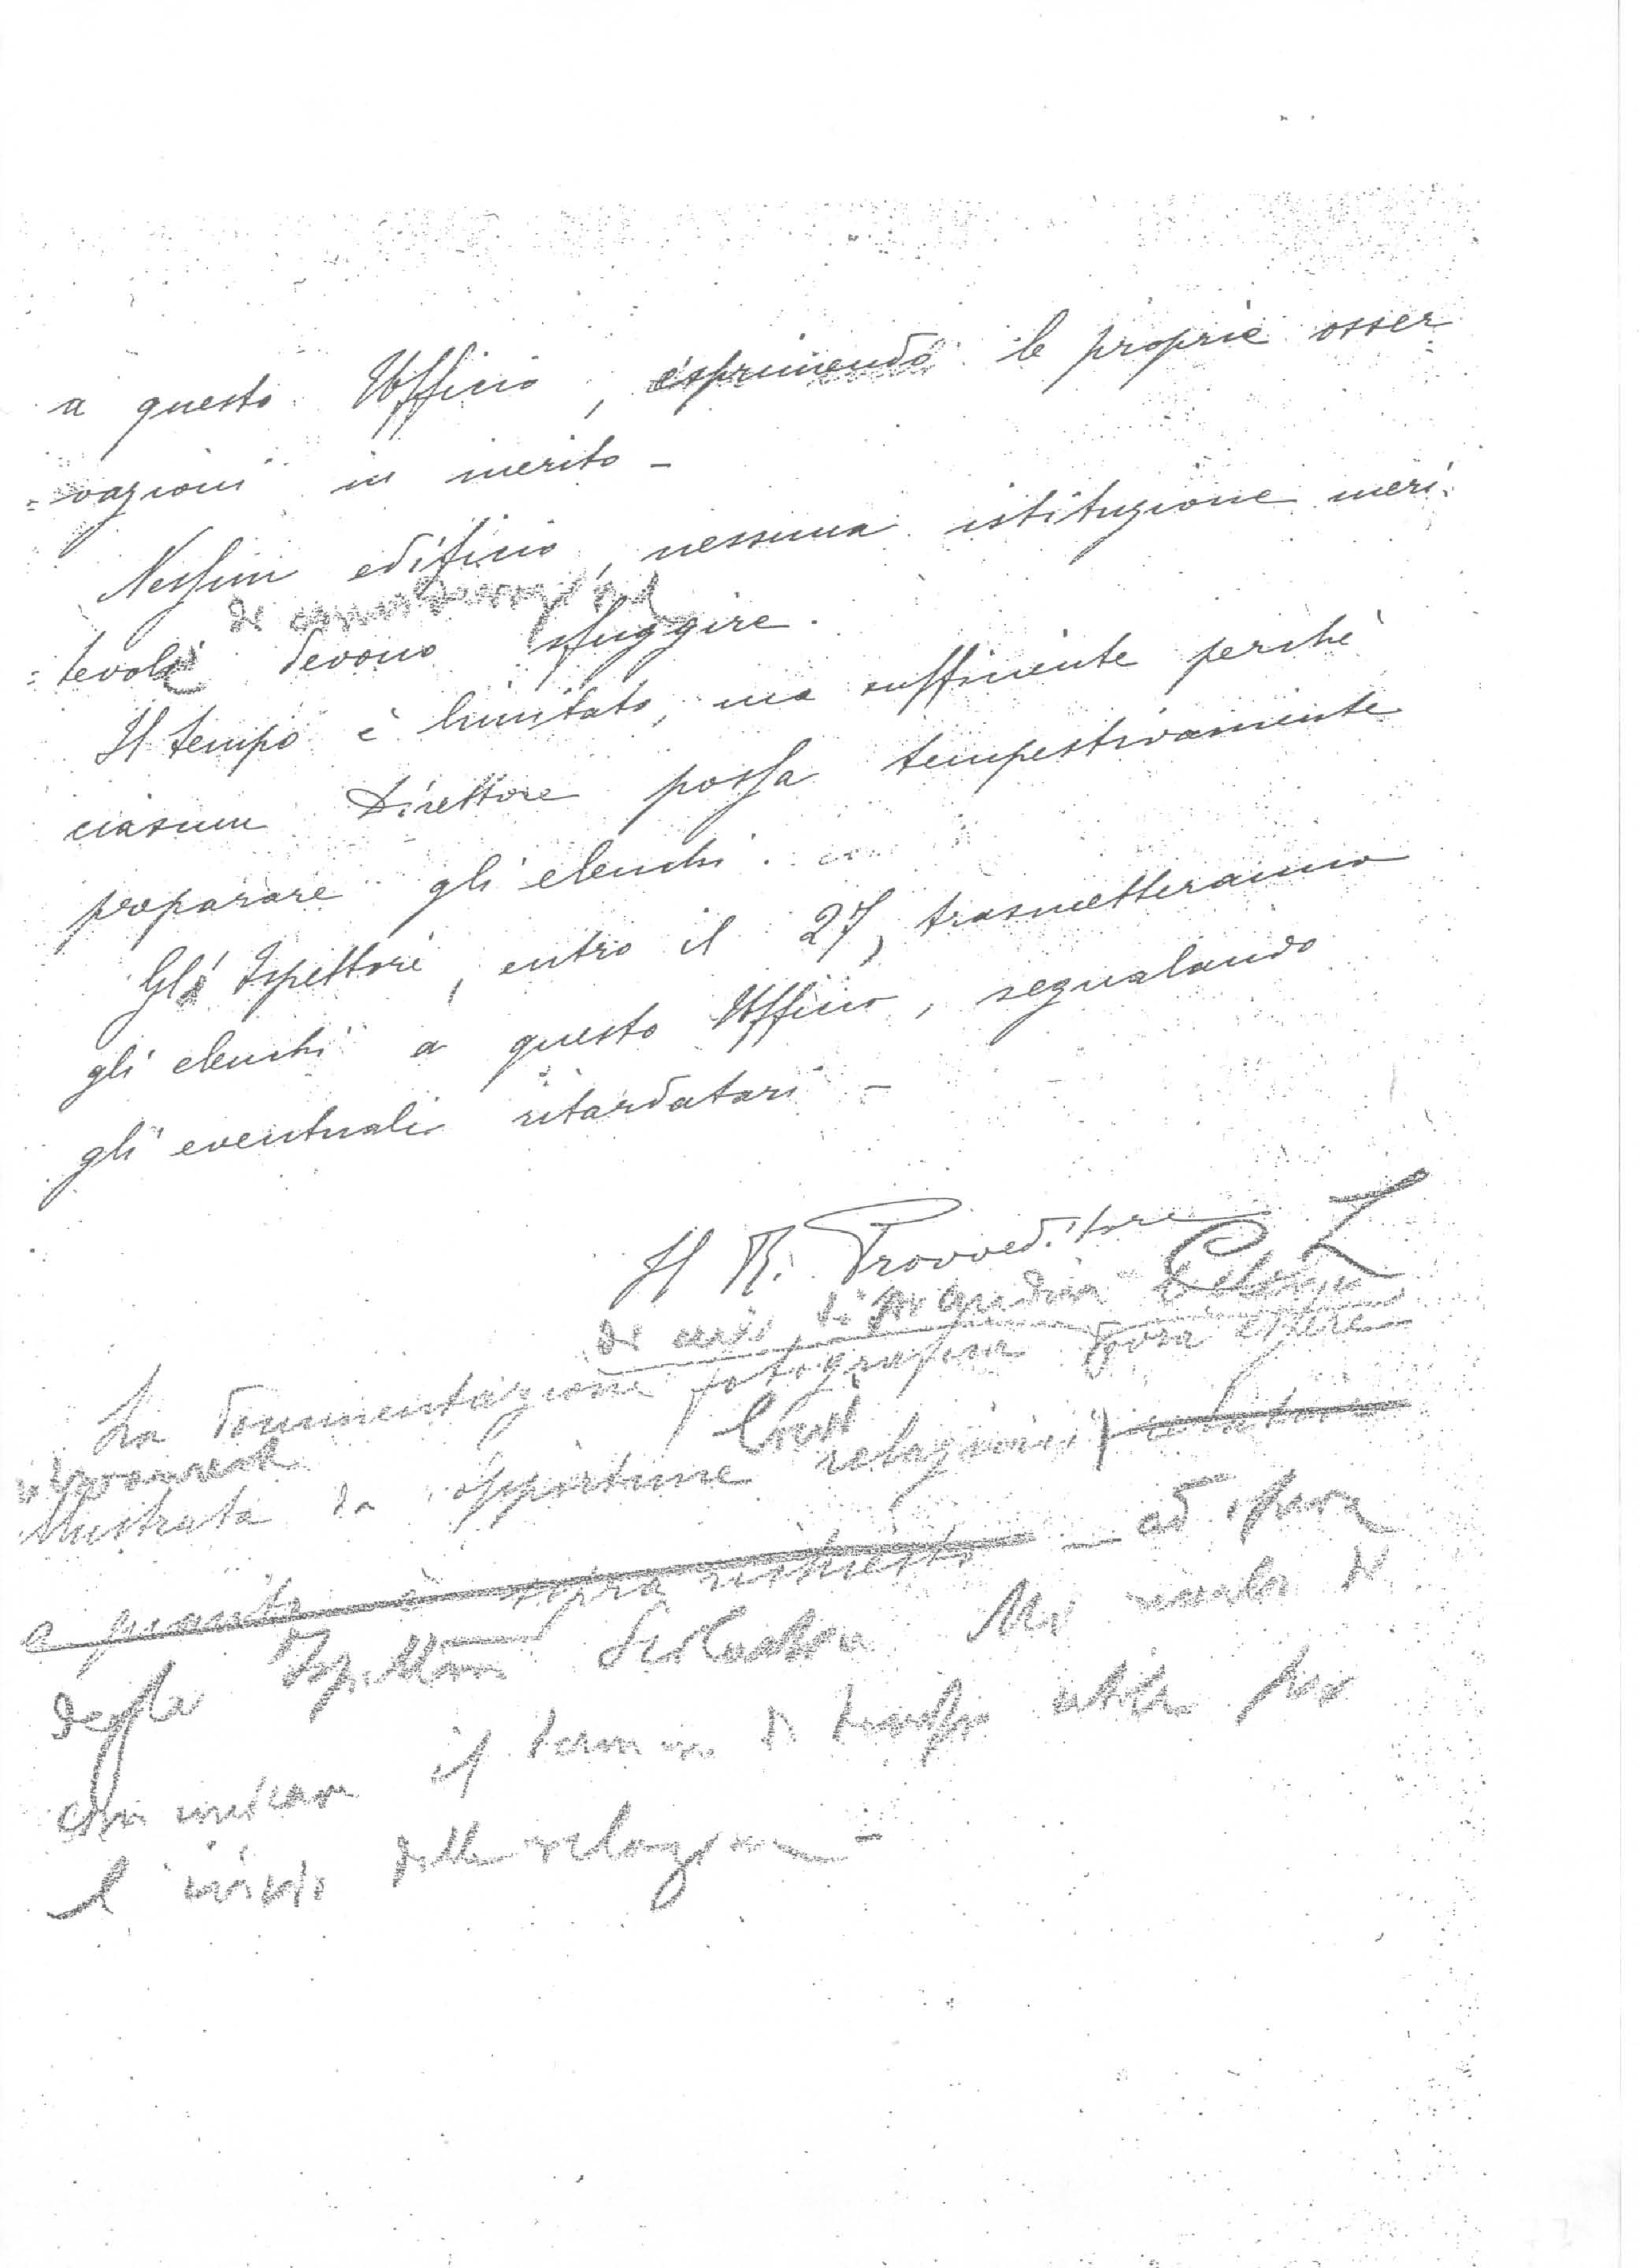 a questo Ufficio, esprimendo le proprie osser
=vazioni in merito -
Nessun edificio, nessuna istituzione meri=
di
=tevole devono sfuggire.
Il tempo è limitato, ma sufficiente perchè
ciascun Direttore possa tempestivamente
proparare gli elenchi.
Gli Ispettori, entro il 27, trasmetteranno
gli elenchi a questo Ufficio, segnalando
gli eventuali ritardatari -
Il R. Provveditore
La documentazione fotografica dovrà essere
brevi
illustrata da opportune relazioni,
a quanto è sopra richiesto - ad opera
degli Ispettori
comunicare il termine di tempo utile per
l'invio delle relazioni -